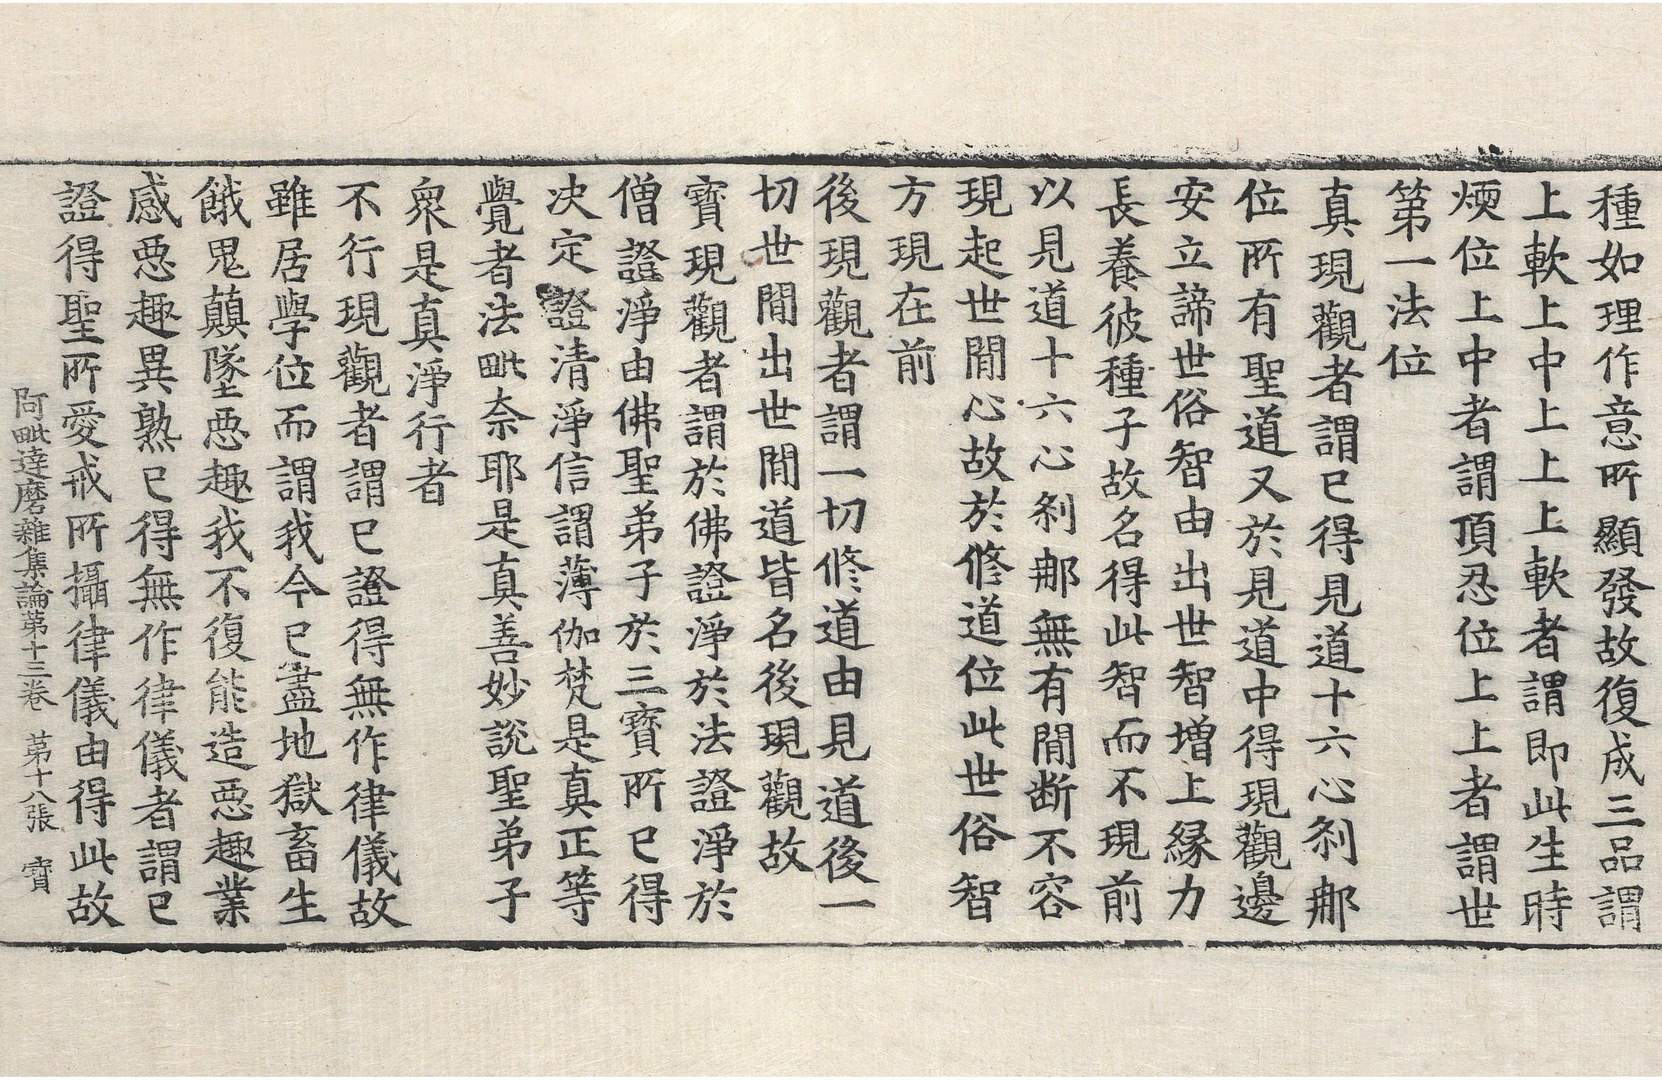 種如理作意所顯發故復成三品謂
上軟上中上上上軟者謂即此生時
煗位上中者謂頂忍位上上者謂世
第一法位
真現觀者謂已得見道十六心剎那
位所有聖道又於見道中得現觀邊
安立諦世俗智由出世智增上緣力
長養彼種子故名得此智而不現前
以見道十六心剎那無有間断不容
現起世間心故於修道位此世俗智
方現在前
後現觀者謂一切修道由見道後一
切世間出世間道皆名後現觀故
寶現觀者謂於佛證淨於法證淨於
僧證淨由佛聖弟子於三寶所已得
决定證清淨信謂薄伽梵是真正等
覺者法毗奈耶是真善妙說聖弟子
衆是真淨行者
不行現觀者謂已證得無作律儀故
雖居學位而謂我今已盡地獄畜生
餓鬼顛墜惡趣我不復能造惡趣業
感惡趣異熟已得無作律儀者謂已
證得聖所愛戒所攝律儀由得此故
阿毗達磨雜集論第十三卷 第十八張 寶